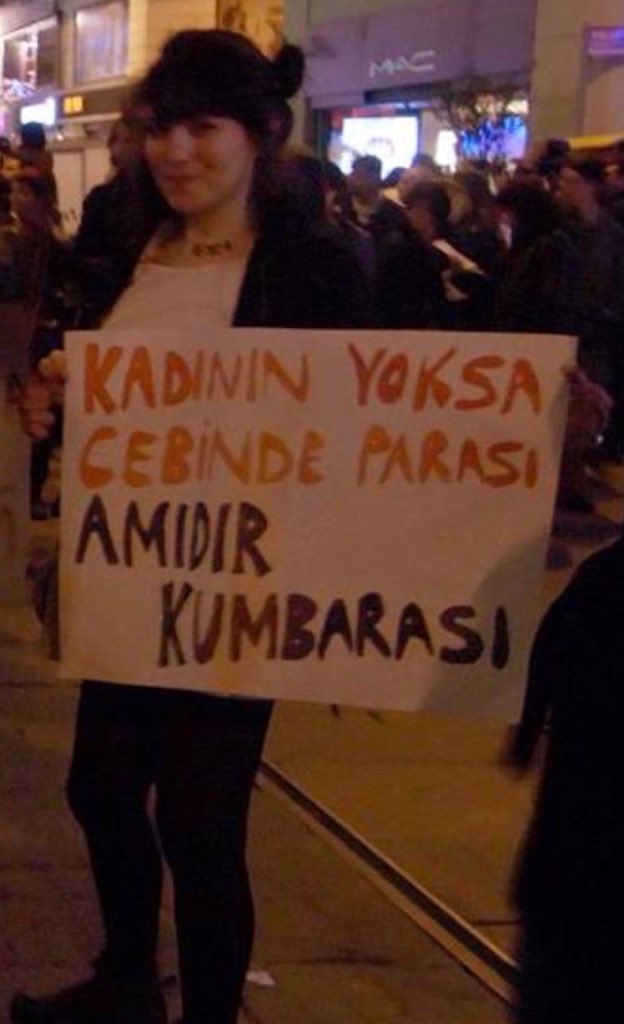 MAC
KADININ YOKSA
CEBİNDE PARASI
AMIDIR
KUMBARASI